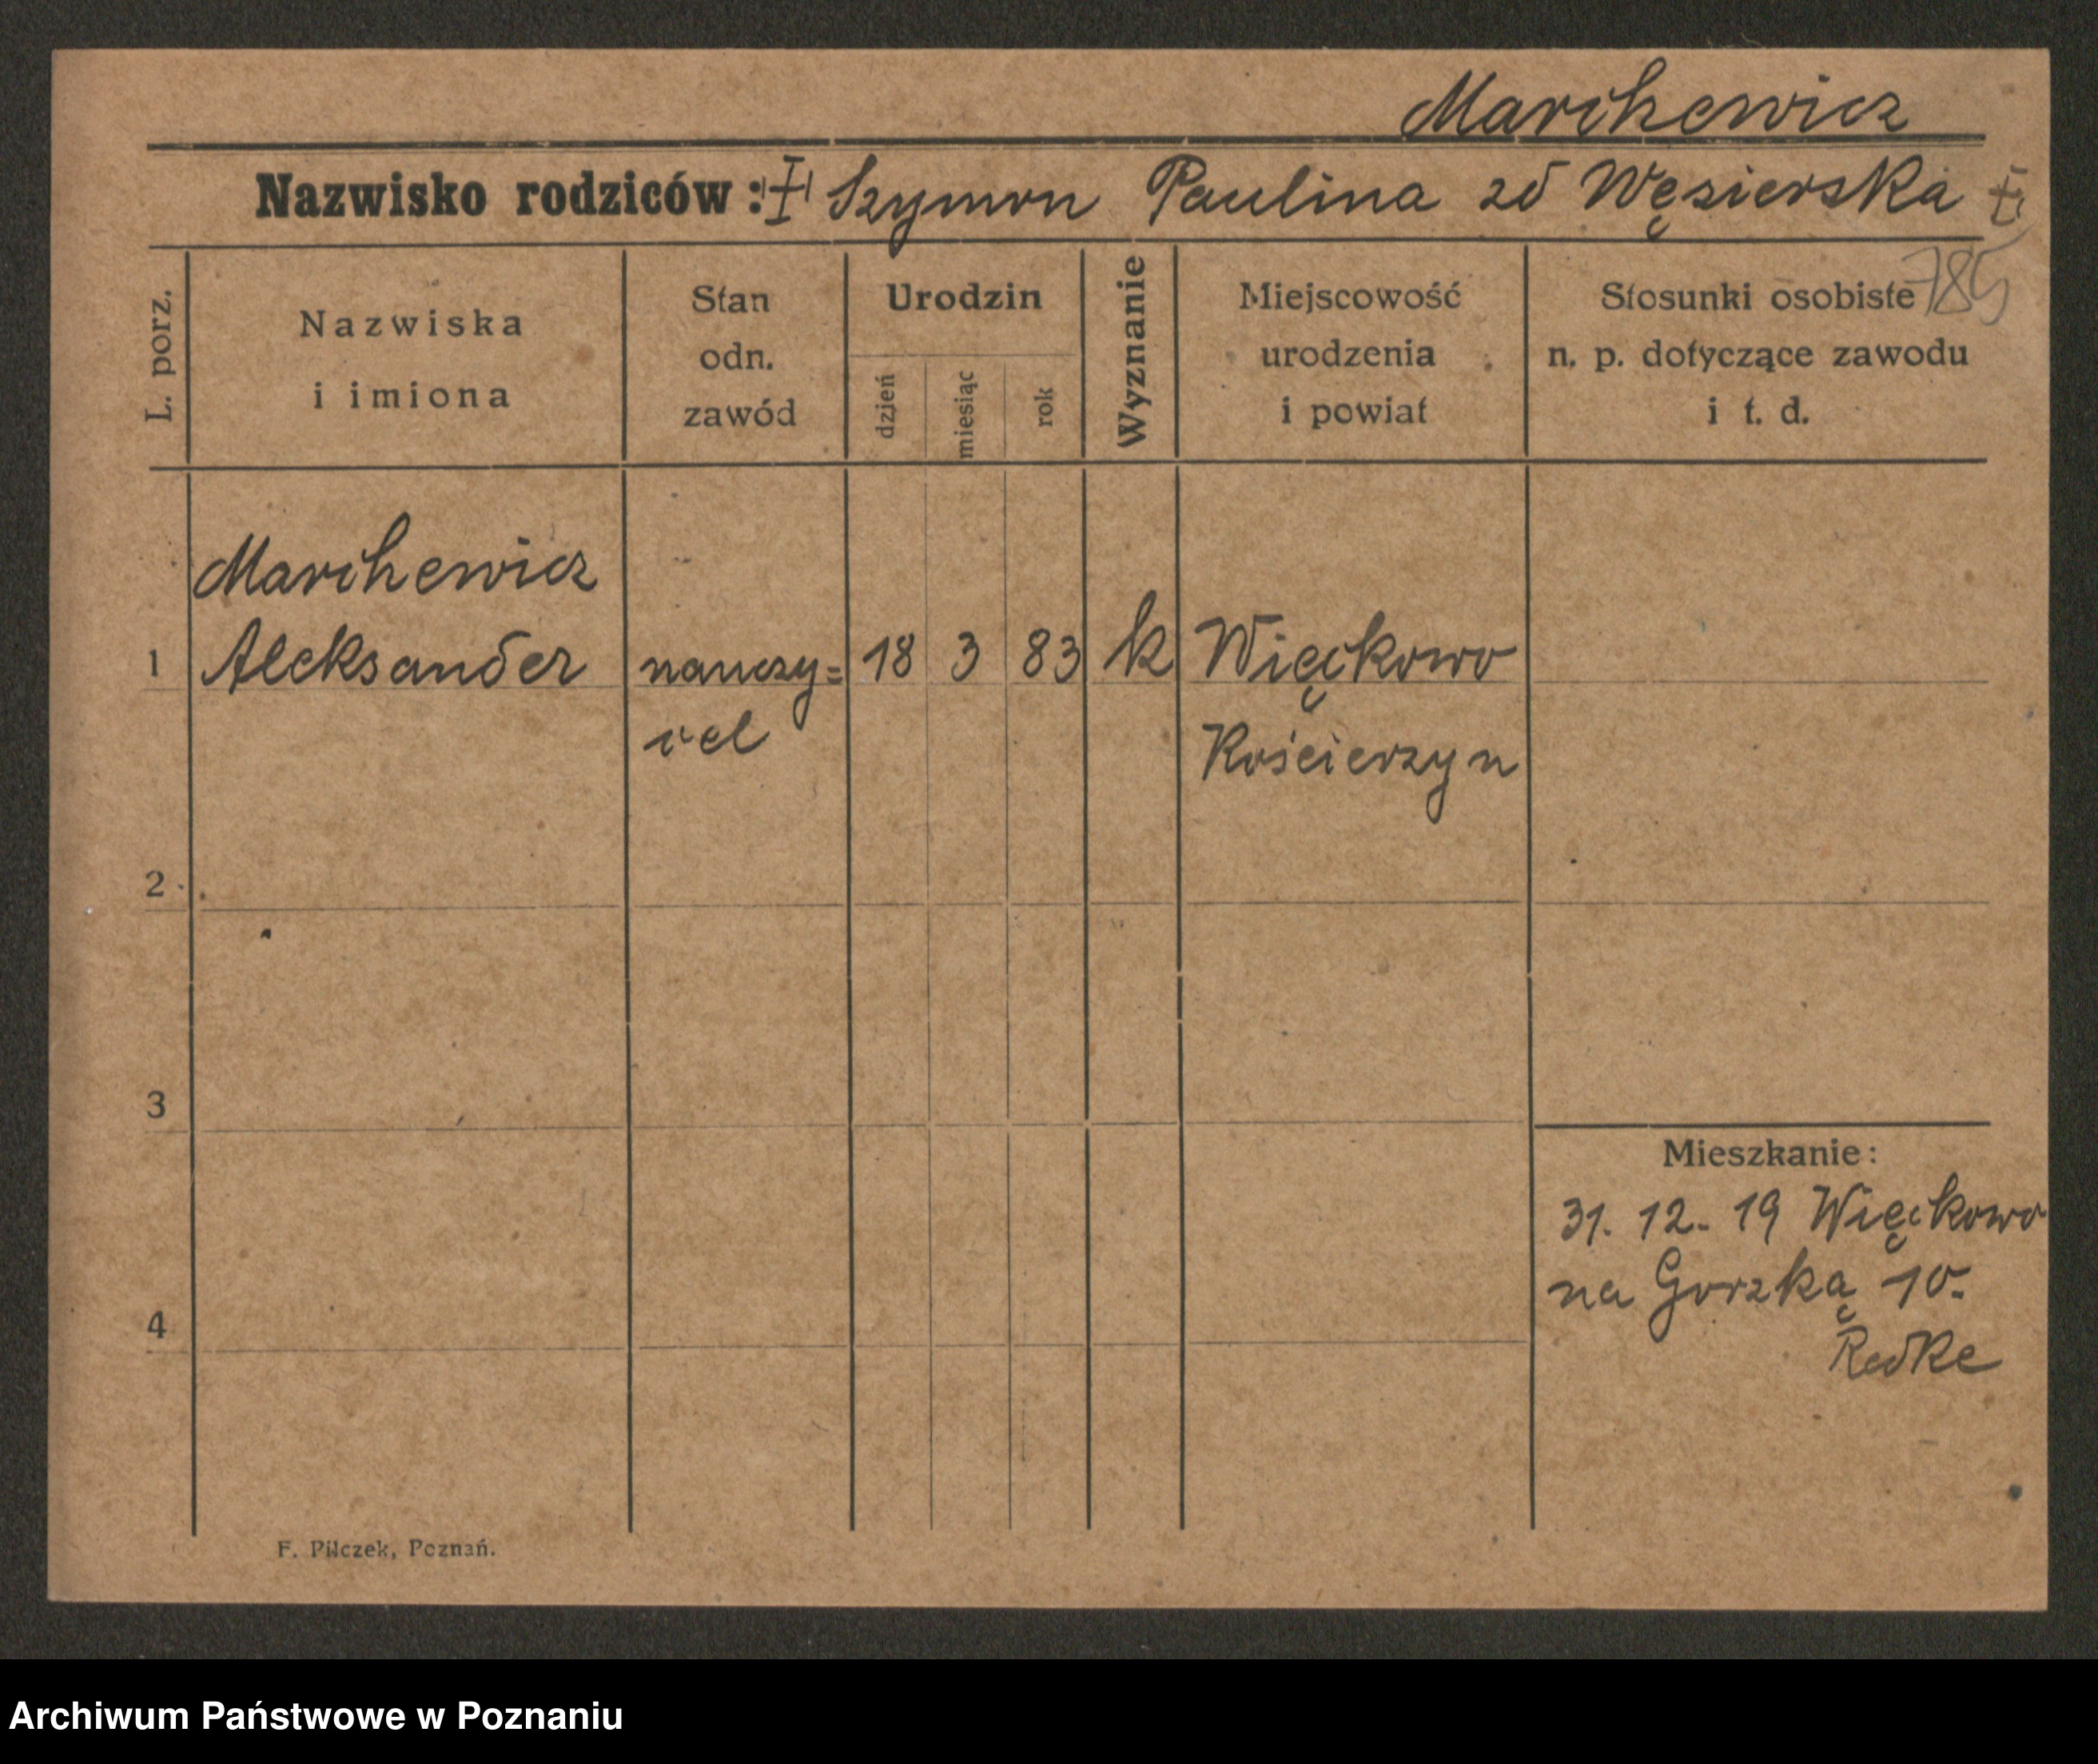 Marchewicz
Nazwisko rodziców: Szymon Paulina zd Węsierska
785
L. porz.
Nazwiska
i imiona
Stan
odn.
zawód
Urodzin
dzień
miesiąc
rok
Wyznanie
Miejscowość
urodzenia
i powiat
Stosunki osobiste
n. p. dotyczące zawodu
i t. d.
Marchewicz
1 Aleksander nauczy= 18 3 83 k Więckowo
ciel Kościerzyn
2
3
Mieszkanie:
31. 12. 19 Więckowo
na Gorzką 10.
4
Radke
F. Pilczek, Poznań.
Archiwum Państwowe w Poznaniu